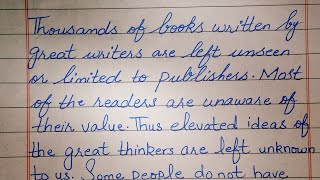 Thousands of books written by
great writers are left unseen
or limited to publishers. Most
of the readers are unaware of
their value. Thus elevated ideas of
the great thinkers are left unknown
to us. Some people do not have